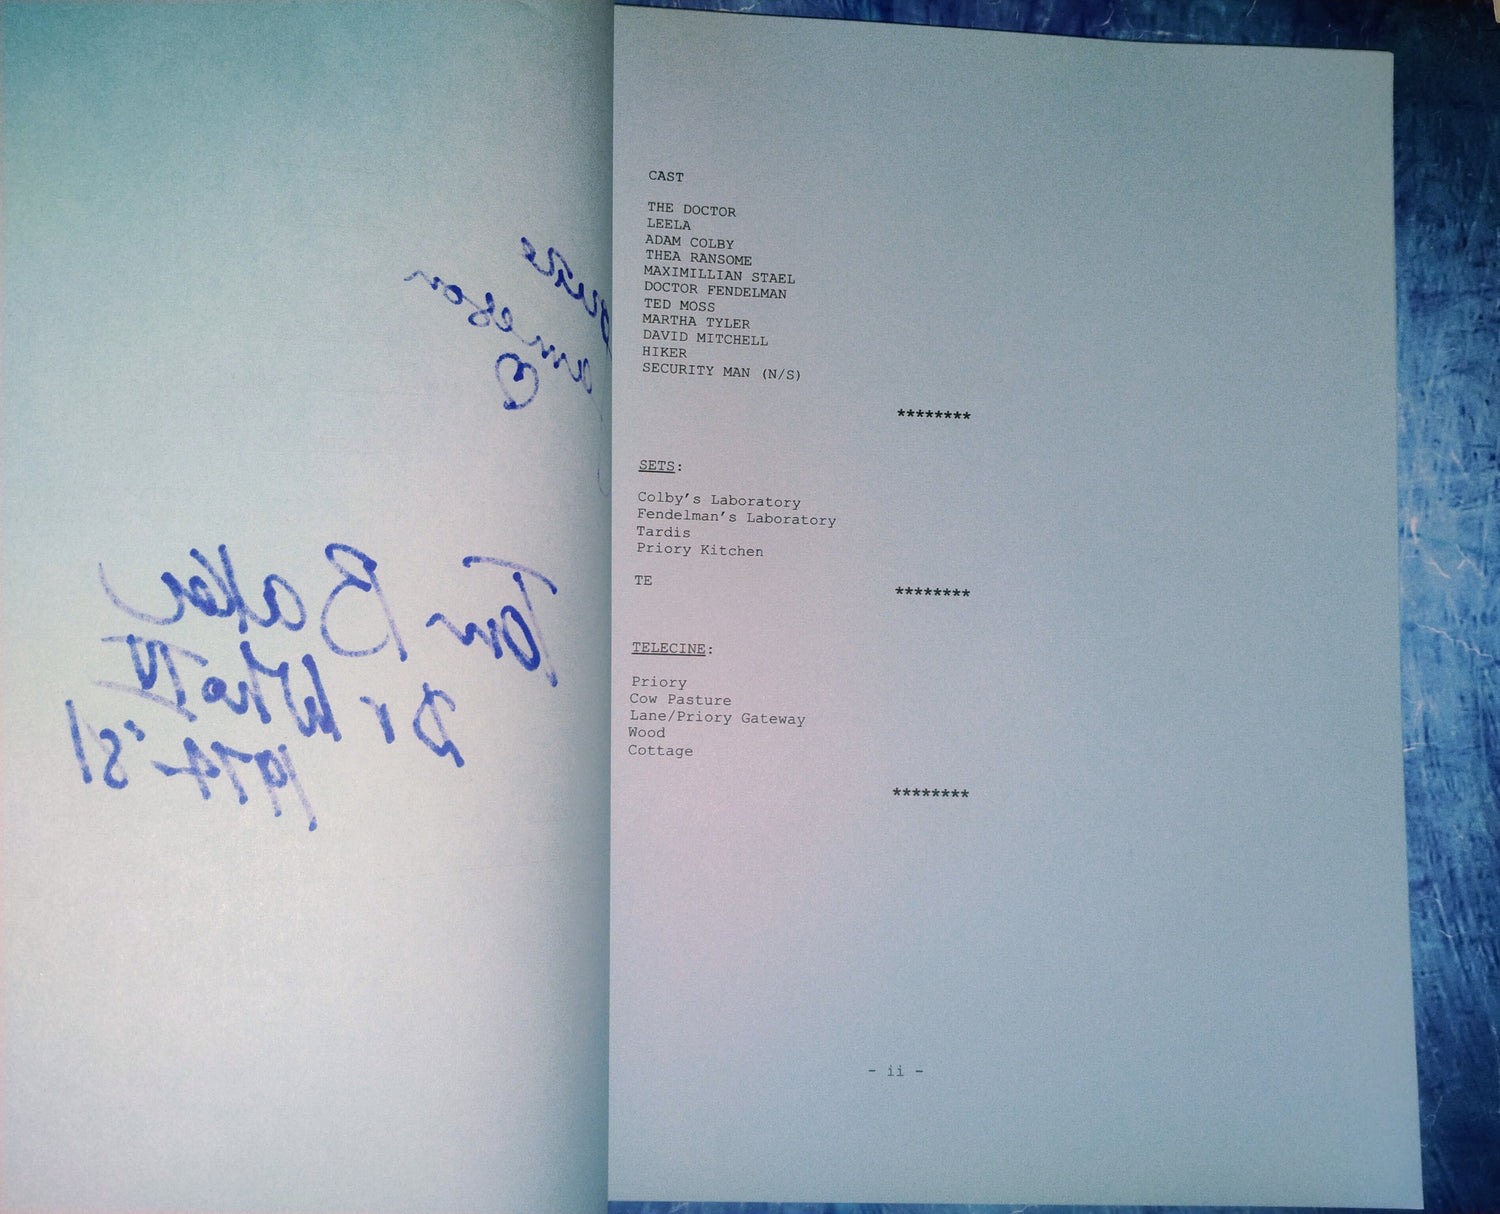 Louise
Jameson
Tom Baker
Dr Who IV
1974-'81
CAST
THE DOCTOR
LEELA
ADAM COLBY
THEA RANSOME
MAXIMILLIAN STAEL
DOCTOR FENDELMAN
TED MOSS
MARTHA TYLER
DAVID MITCHELL
HIKER
SECURITY MAN (N/S)
********
SETS:
Colby's Laboratory
Fendelman's Laboratory
Tardis
Priory Kitchen
TE
********
TELECINE:
Priory
Cow Pasture
Lane/Priory Gateway
Wood
Cottage
********
- ii -